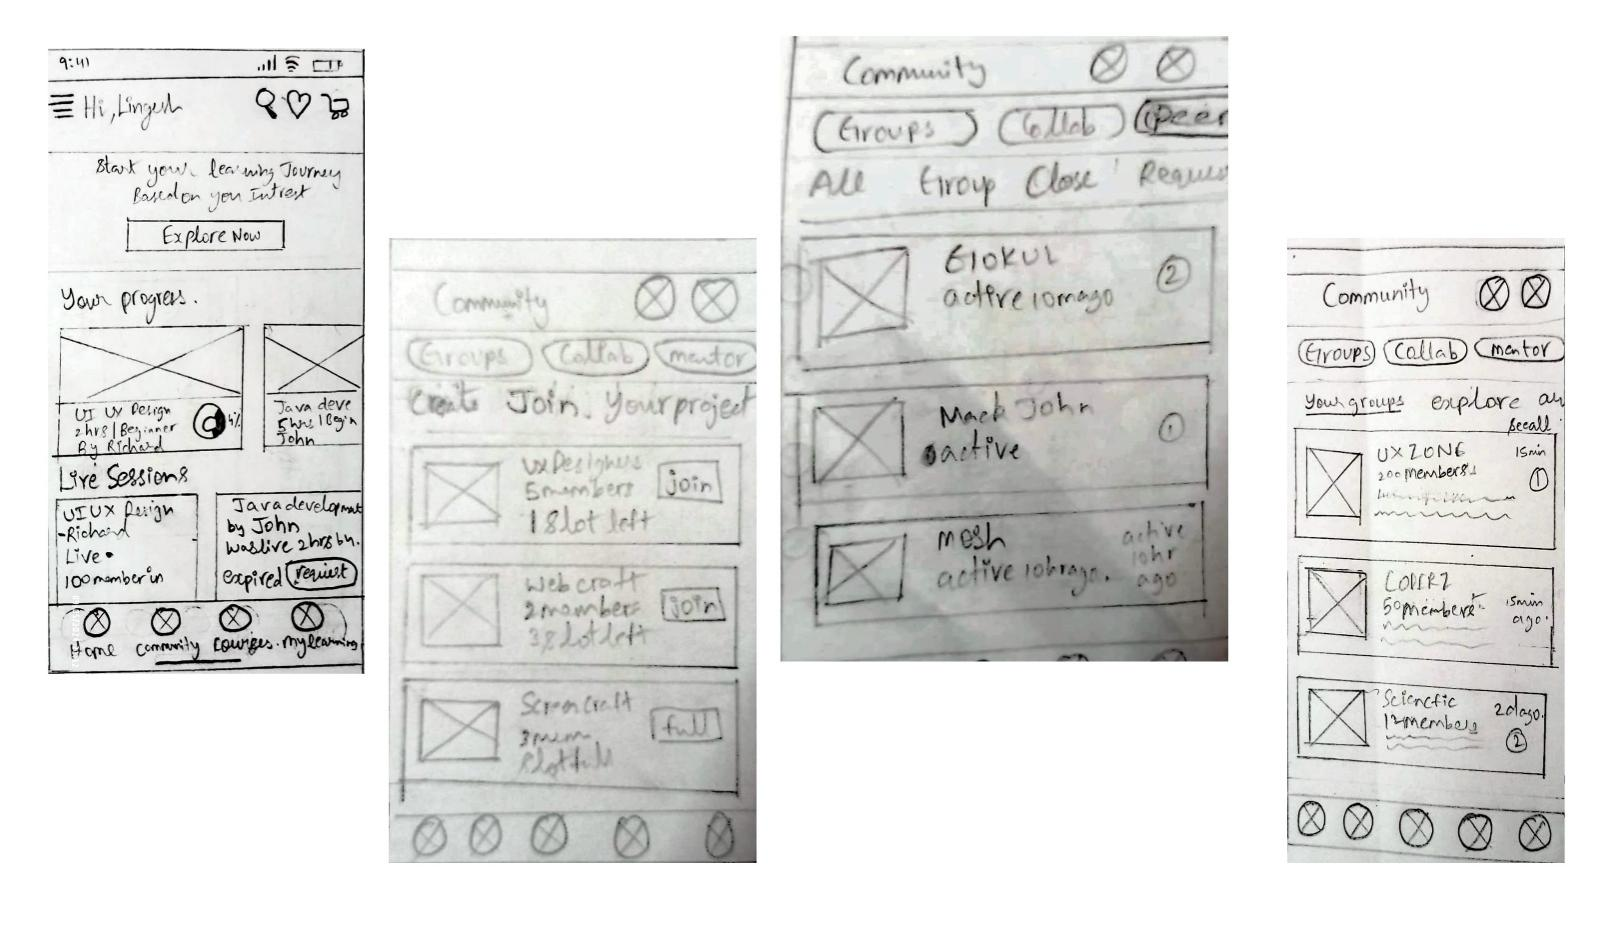 9:41
Hi, Lingesh
Start your learning Journey
Based on you Intrest
Explore Now
Your progress.
UI UX Design
2hrs | Beginner
By Richard
4%
Java deve
5hrs | Begin
John
Live Sessions
UI UX Design
-Richard
Live
100 member in
Java developmet
by John
was live 2 hrs
expired request
Home Community Courses. My learning
Community
Groups Collab mentor
Create Join. Your project
UX Designers
5 members
1 Slot left
join
Web craft
2 members
3 Slot left
join
Screen Craft
3 mem
Slot full
full
Community
Groups Collab Peer
All Group Close Reques
GOKUL
active 10m ago
2
Mack John
active
1
mesh
active 10hr ago.
active
10hr
ago
Community
Groups Collab mentor
Your groups explore
See all
UX ZONE
200 members
15min
1
CODERZ
50 members
15min
ago.
Scienctic
12 members
2d ago.
2